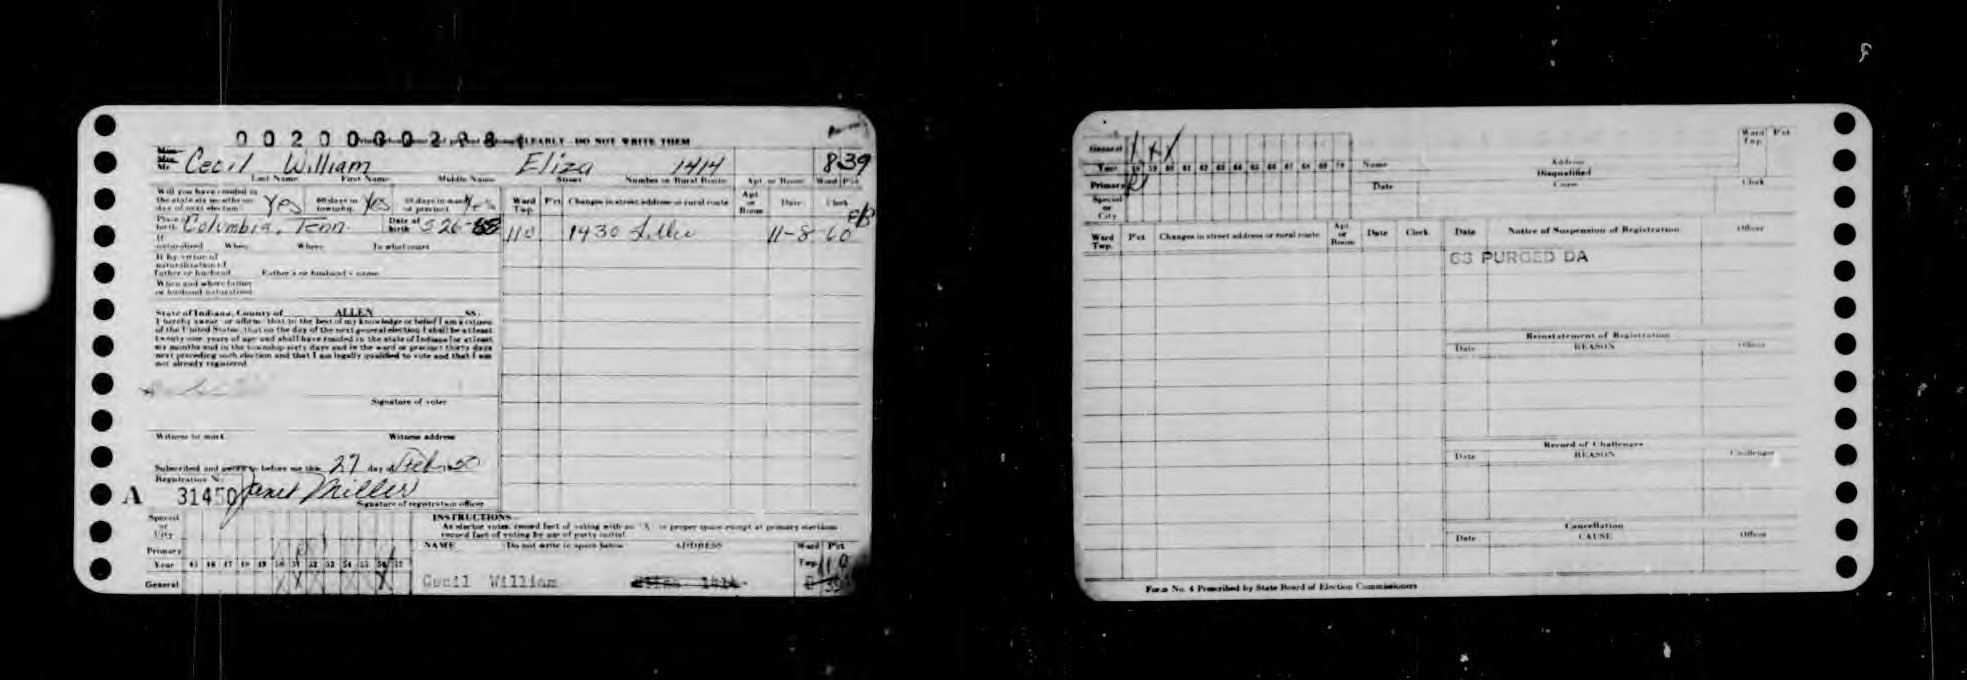 0020000298 CLEARLY DO NOT WRITE THEM
Miss
Mrs.
Mr. Cecil William Eliza 1414 8 39
Last Name First Name Middle Name Street Number or Rural Route Apt or Room Ward Pct
Will you have resided in the state six months on day of next election Yes 60 days in township Yes 30 days in ward or precinct Yes
Ward Twp. Pct Changes in street address or rural route Apt or Room Date Clerk
Place of birth Columbia, Tenn. Date of birth 5 26
110 1930 11-8 60
If naturalized When Where In what court
If by virtue of naturalization of father or husband Father's or husband's name
When and where father or husband naturalized
State of Indiana, County of ALLEN SS.
I hereby swear or affirm that to the best of my knowledge or belief I am a citizen
of the United States, that on the day of the next general election I shall be at least
twenty-one years of age and shall have resided in the state of Indiana for at least
six months and in the township sixty days and in the ward or precinct thirty days
next preceding such election and that I am legally qualified to vote and that I am
not already registered
Signature of voter
Witness to mark Witness address
Subscribed and sworn to before me this 27 day of Feb 50
Registration No.
A 31450 Janet Miller
Signature of registration officer
Special or City
Primary
Year 45 46 47 48 49 50 51 52 53 54 55 56 57
General
INSTRUCTIONS
As elector votes, record fact of voting with an X in proper space except at primary elections
record fact of voting by use of party initial.
NAME Do not write in space below ADDRESS Ward Twp. Pct
110
Cecil William Eliza 1414 8 39
General
Year 58 59 60 61 62 63 64 65 66 67 68 69 70
Primary
Special or City
Name Address Ward Twp. Pct
Disqualified
Date Cause Clerk
Ward Twp. Pct Changes in street address or rural route Apt or Room Date Clerk
Date Notice of Suspension of Registration Officer
63 PURGED DA
Reinstatement of Registration
Date REASON Officer
Record of Challenges
Date REASON Challenger
Cancellation
Date CAUSE Officer
Form No. 4 Prescribed by State Board of Election Commissioners